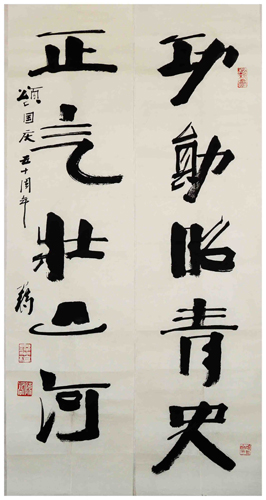 功勋昭青史
正气壮山河
颂国庆五十周年